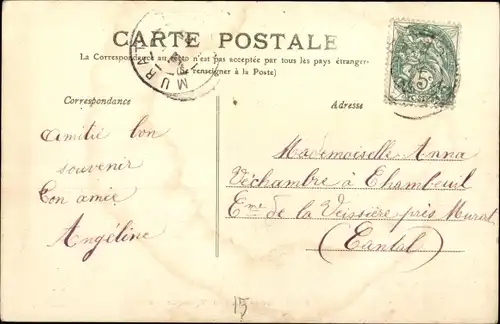 CARTE POSTALE
La Correspondance au recto n'est pas acceptée par tous les pays étrangers
(Se renseigner à la Poste)
MURAT
5
Correspondance
Adresse
Amitié bon
souvenir
Ton amie
Angéline
Mademoiselle Anna
Véchambre à Chambeuil
Cne de la Veissière près Murat
(Cantal)
15